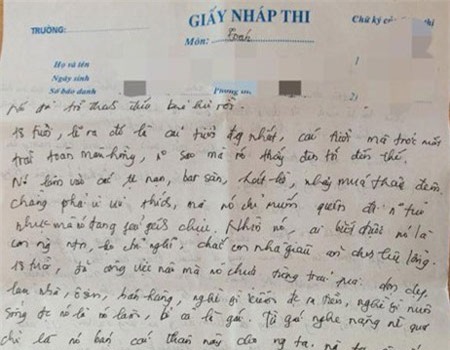 GIẤY NHÁP THI
TRƯỜNG:
Chữ ký thi
Môn: Toán
Họ và tên
1
Ngày sinh
Số báo danh Phòng thi
2
Nó đã trở thành đứa hư rồi.
18 tuổi, lẽ ra đó là cái tuổi đẹp nhất, cái tuổi mà trước mắt
trải toàn màu hồng, sao mà nó thấy đen tối đến thế.
Nó lâm vào các tệ nạn, bar sàn, nhảy múa thâu đêm.
Chẳng phải vì thích, mà nó chỉ muốn quên đi thứ
mà nó đang chịu. Nhìn nó, ai biết được nó là
con ng ntn, họ chỉ nghĩ, chắc con nhà giàu ăn chơi lêu lổng.
18 tuổi, đủ công việc nào mà nó chưa từng trải qua. dọn dẹp
lau nhà, ôsin, bán hàng, nghề gì kiếm đc ra tiền, nghề gì nuôi
sống đc nó là nó làm, kể cả là gái. Từ gái nghe nặng nề quá
chỉ là nó bán cái thân này cho ng ta.